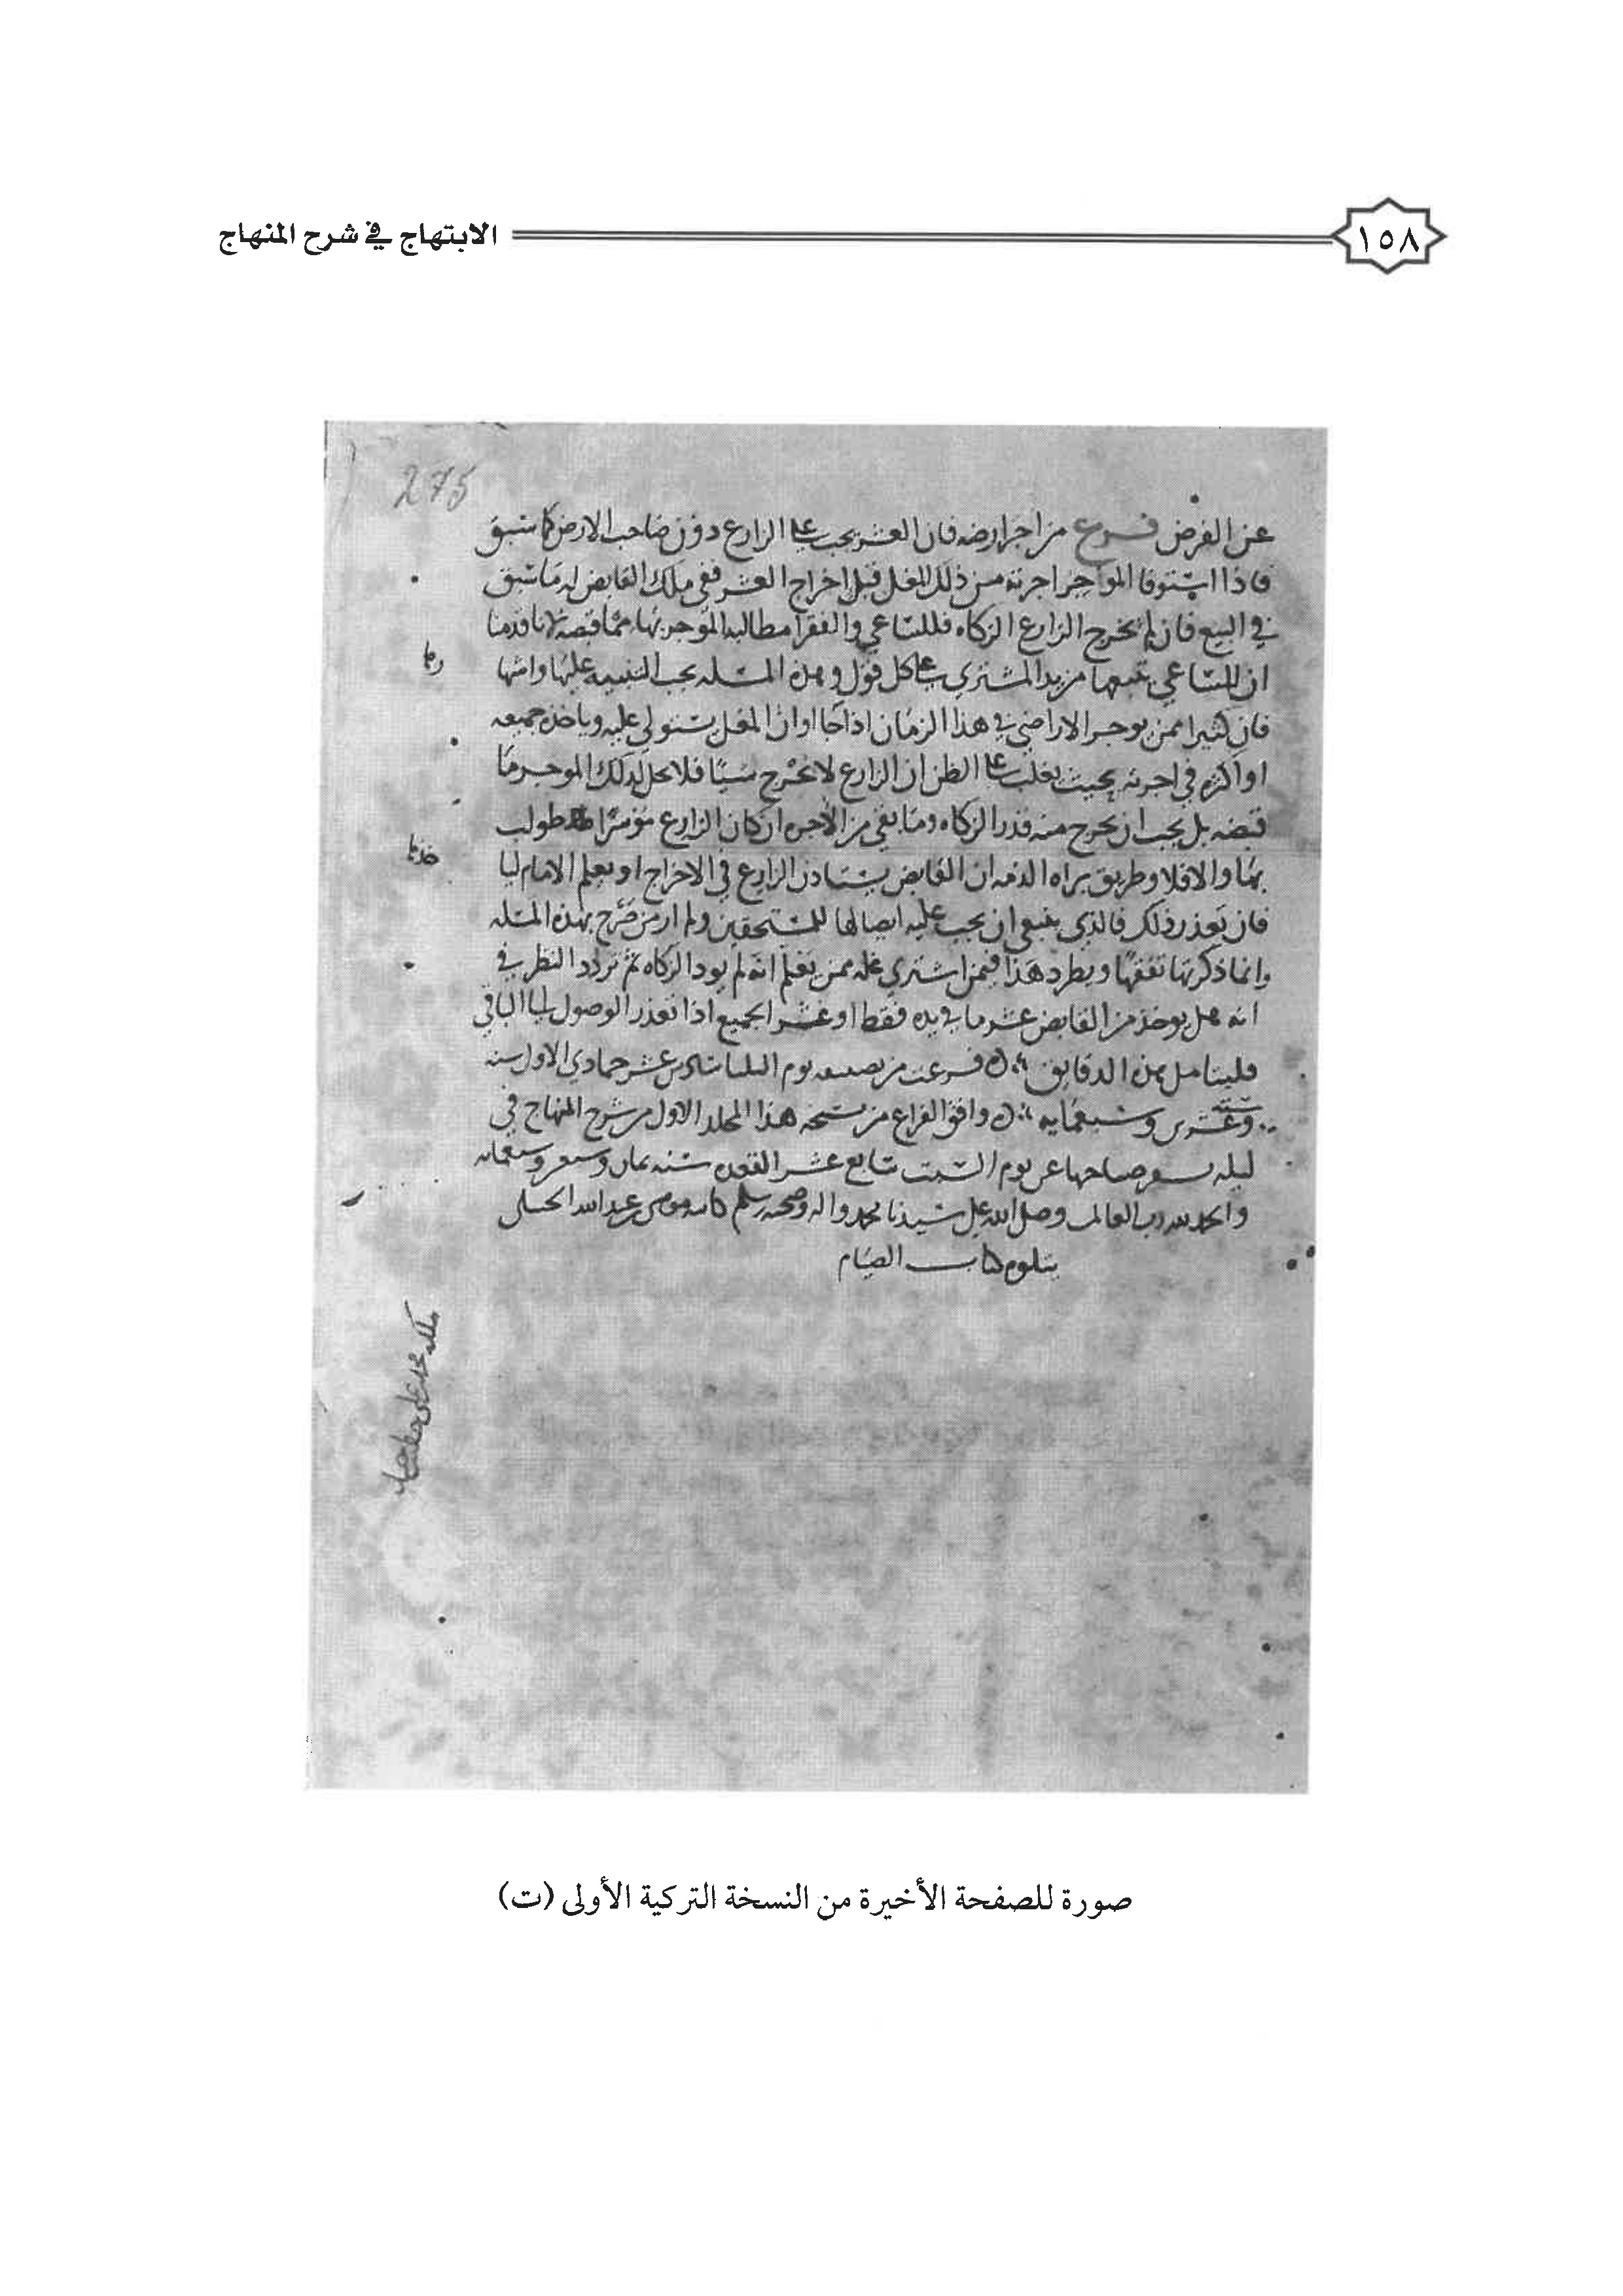 ١٥٨
الابتهاج في شرح المنهاج
275
عن الفرض فرع من اجر ارضه فان العشر يجب على الزارع دون صاحب الارض كما سبق
فاذا استوفا المواجر اجرته من ذلك المغل قبل اخراج العشر ففي ملك القابض له ما سبق
في البيع فان لم يخرج الزارع الزكاه فللساعي والفقرا مطالبه الموجر بها مما قبضه لانا قدمنا
ان للساعي تتبعها من يد المشتري على كل قول وهذه المسله يجب التنبيه عليها واشها
فان كثيرا ممن يوجر الاراضي في هذا الزمان اذا جا اوان المغل يستولي عليه وياخذ جميعه
او اكثره في اجرته بحيث يغلب على الظن ان الزارع لا يخرج شيا فلا يحل لذلك الموجر ما
قبضه بل يجب ان يخرج منه قدر الزكاه وما بقي من الاجره ان كان الزارع موسرا طولب
بها والا فلا وطريق براه الذمه ان القابض يستاذن الزارع في الاخراج او يعلم الامام
فان تعذر ذلك فالذي ينبغي ان يجب عليه ايصالها للمستحقين ولم ار من صرح بهذه المسله
وانما ذكرتها تفقها ويطرد هذا فيمن اشتري غله ممن يعلم انه لم يود الزكاه ثم تردد النظر في
انه هل يوخذ من القابض عشر ما في يده فقط او عشر الجميع اذا تعذر الوصول الى الباقي
فليتامل هذه الدقايق فرغت من تصنيفه يوم الثلثا سادس عشر جمادي الاول سنه
سته وعشرين وسبعمايه وافق الفراغ من نسخه هذا المجلد الاول من شرح المنهاج في
ليله صباحها عن يوم السبت سابع عشر القعده سنه ثمان وسبعمايه
والحمد لله رب العالمين وصلى الله على سيدنا محمد واله وصحبه وسلم كاتبه موسى بن عبد الله
يتلوه كتاب الصيام
صورة للصفحة الأخيرة من النسخة التركية الأولى (ت)